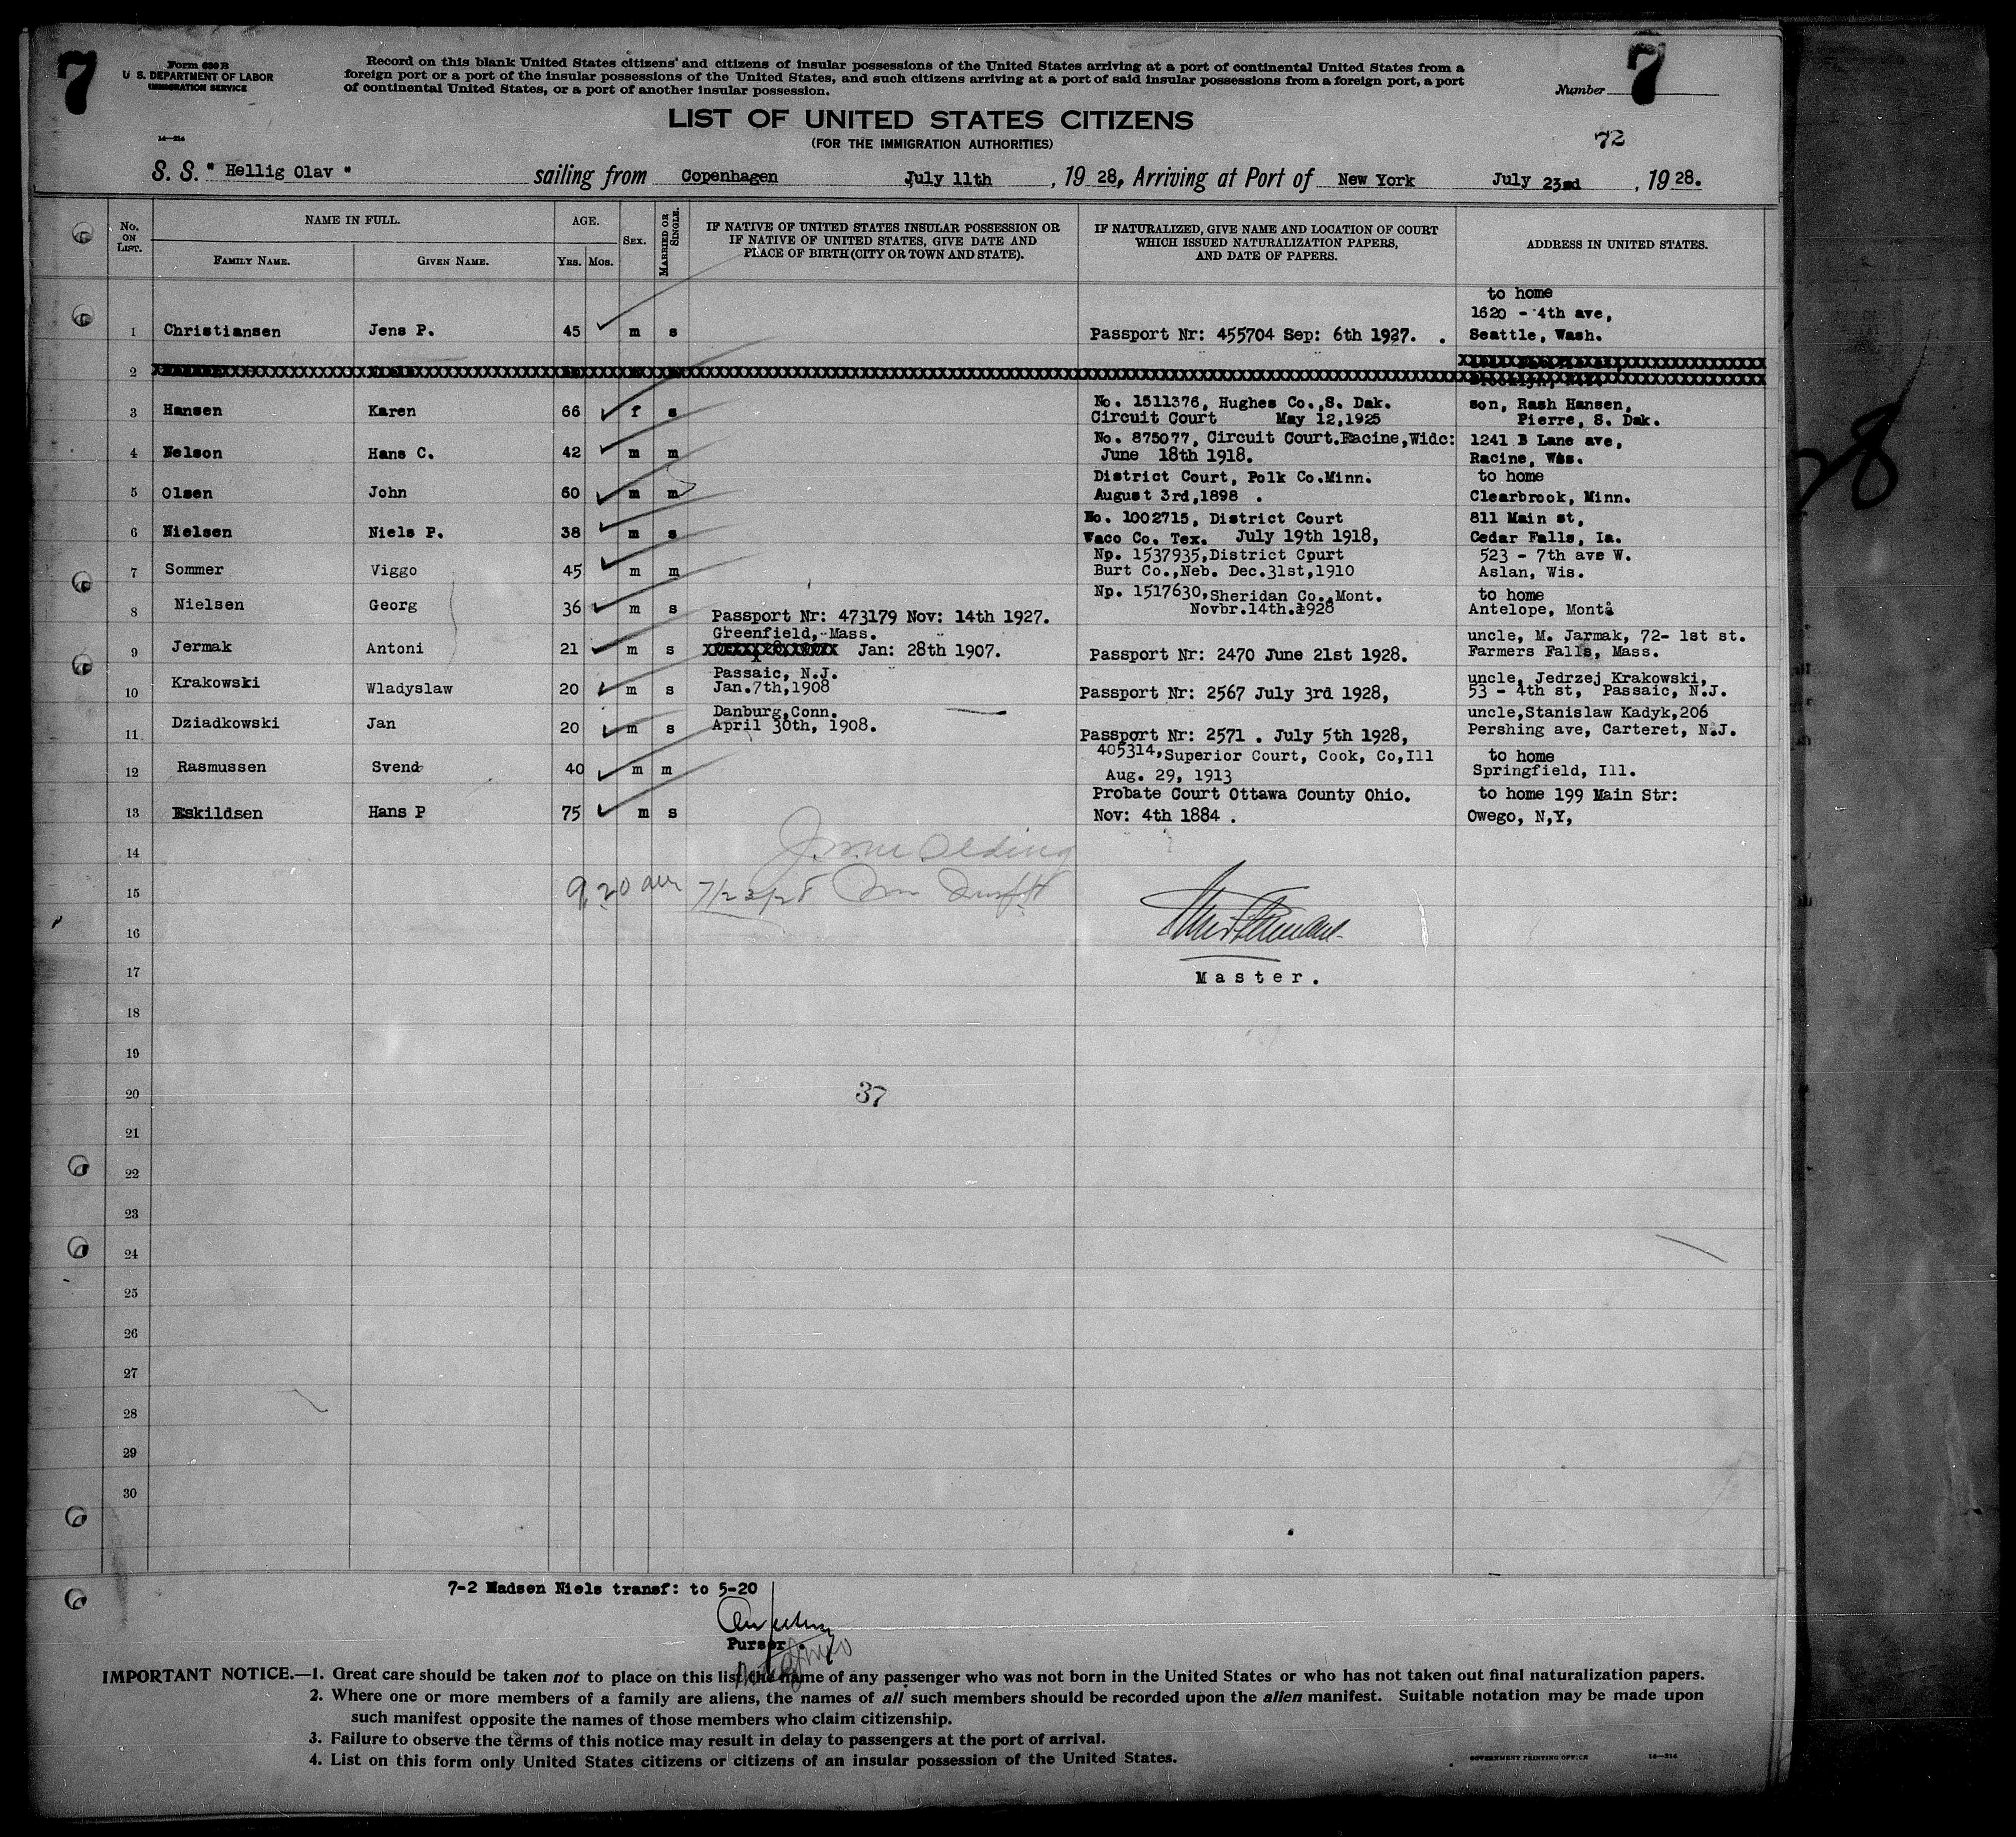 7
Form 630 B
U. S. DEPARTMENT OF LABOR
IMMIGRATION SERVICE
14—214
Record on this blank United States citizens and citizens of insular possessions of the United States arriving at a port of continental United States from a
foreign port or a port of the insular possessions of the United States, and such citizens arriving at a port of said insular possessions from a foreign port, a port
of continental United States, or a port of another insular possession.
Number 7
LIST OF UNITED STATES CITIZENS
(FOR THE IMMIGRATION AUTHORITIES)
72
S. S. " Hellig Olav " sailing from Copenhagen July 11th, 1928, Arriving at Port of New York July 23rd, 1928.
No. ON LIST.
NAME IN FULL.
FAMILY NAME. GIVEN NAME.
AGE.
YRS. MOS.
SEX.
MARRIED OR SINGLE.
IF NATIVE OF UNITED STATES INSULAR POSSESSION OR
IF NATIVE OF UNITED STATES, GIVE DATE AND
PLACE OF BIRTH (CITY OR TOWN AND STATE).
IF NATURALIZED, GIVE NAME AND LOCATION OF COURT
WHICH ISSUED NATURALIZATION PAPERS,
AND DATE OF PAPERS.
ADDRESS IN UNITED STATES.
to home
1620 - 4th ave,
1 Christiansen Jens P. 45 m s Passport Nr: 455704 Sep: 6th 1927. . Seattle, Wash.
2
No. 1511376, Hughes Co.,S. Dak. son, Rash Hansen,
3 Hansen Karen 66 f s Circuit Court May 12,1925 Pierre, S. Dak.
No. 875077, Circuit Court.Racine,Widc: 1241 B Lane ave,
4 Nelson Hans C. 42 m m June 18th 1918. Racine, Wis.
District Court, Polk Co.Minn. to home
5 Olsen John 60 m m August 3rd,1898 . Clearbrook, Minn.
No. 1002715, District Court 811 Main st,
6 Nielsen Niels P. 38 m s Waco Co. Tex. July 19th 1918, Cedar Falls, Ia.
Np. 1537935,District Court 523 - 7th ave W.
7 Sommer Viggo 45 m m Burt Co.,Neb. Dec.31st,1910 Aslan, Wis.
Np. 1517630,Sheridan Co., Mont. to home
8 Nielsen Georg 36 m s Passport Nr: 473179 Nov: 14th 1927. Novbr.14th.1928 Antelope, Mont.
Greenfield, Mass. uncle, M. Jarmak, 72- 1st st.
9 Jermak Antoni 21 m s Jan: 28th 1907. Passport Nr: 2470 June 21st 1928. Farmers Falls, Mass.
Passaic, N.J. uncle, Jedrzej Krakowski,
10 Krakowski Wladyslaw 20 m s Jan.7th,1908 Passport Nr: 2567 July 3rd 1928, 53 - 4th st, Passaic, N.J.
Danburg,Conn. uncle,Stanislaw Kadyk,206
11 Dziadkowski Jan 20 m s April 30th, 1908. Passport Nr: 2571 . July 5th 1928, Pershing ave, Carteret, N.J.
405314,Superior Court, Cook, Co,Ill to home
12 Rasmussen Svend 40 m m Aug. 29, 1913 Springfield, Ill.
Probate Court Ottawa County Ohio. to home 199 Main Str:
13 Eskildsen Hans P 75 m s Nov: 4th 1884 . Owego, N,Y,
14
15 9,20 am 7/23/28
16
17 Master.
18
19
20 37
21
22
23
24
25
26
27
28
29
30
7-2 Madsen Niels transf: to 5-20
Purser.
IMPORTANT NOTICE.—1. Great care should be taken not to place on this list the name of any passenger who was not born in the United States or who has not taken out final naturalization papers.
2. Where one or more members of a family are aliens, the names of all such members should be recorded upon the alien manifest. Suitable notation may be made upon
such manifest opposite the names of those members who claim citizenship.
3. Failure to observe the terms of this notice may result in delay to passengers at the port of arrival.
4. List on this form only United States citizens or citizens of an insular possession of the United States.
GOVERNMENT PRINTING OFFICE 14—214
28